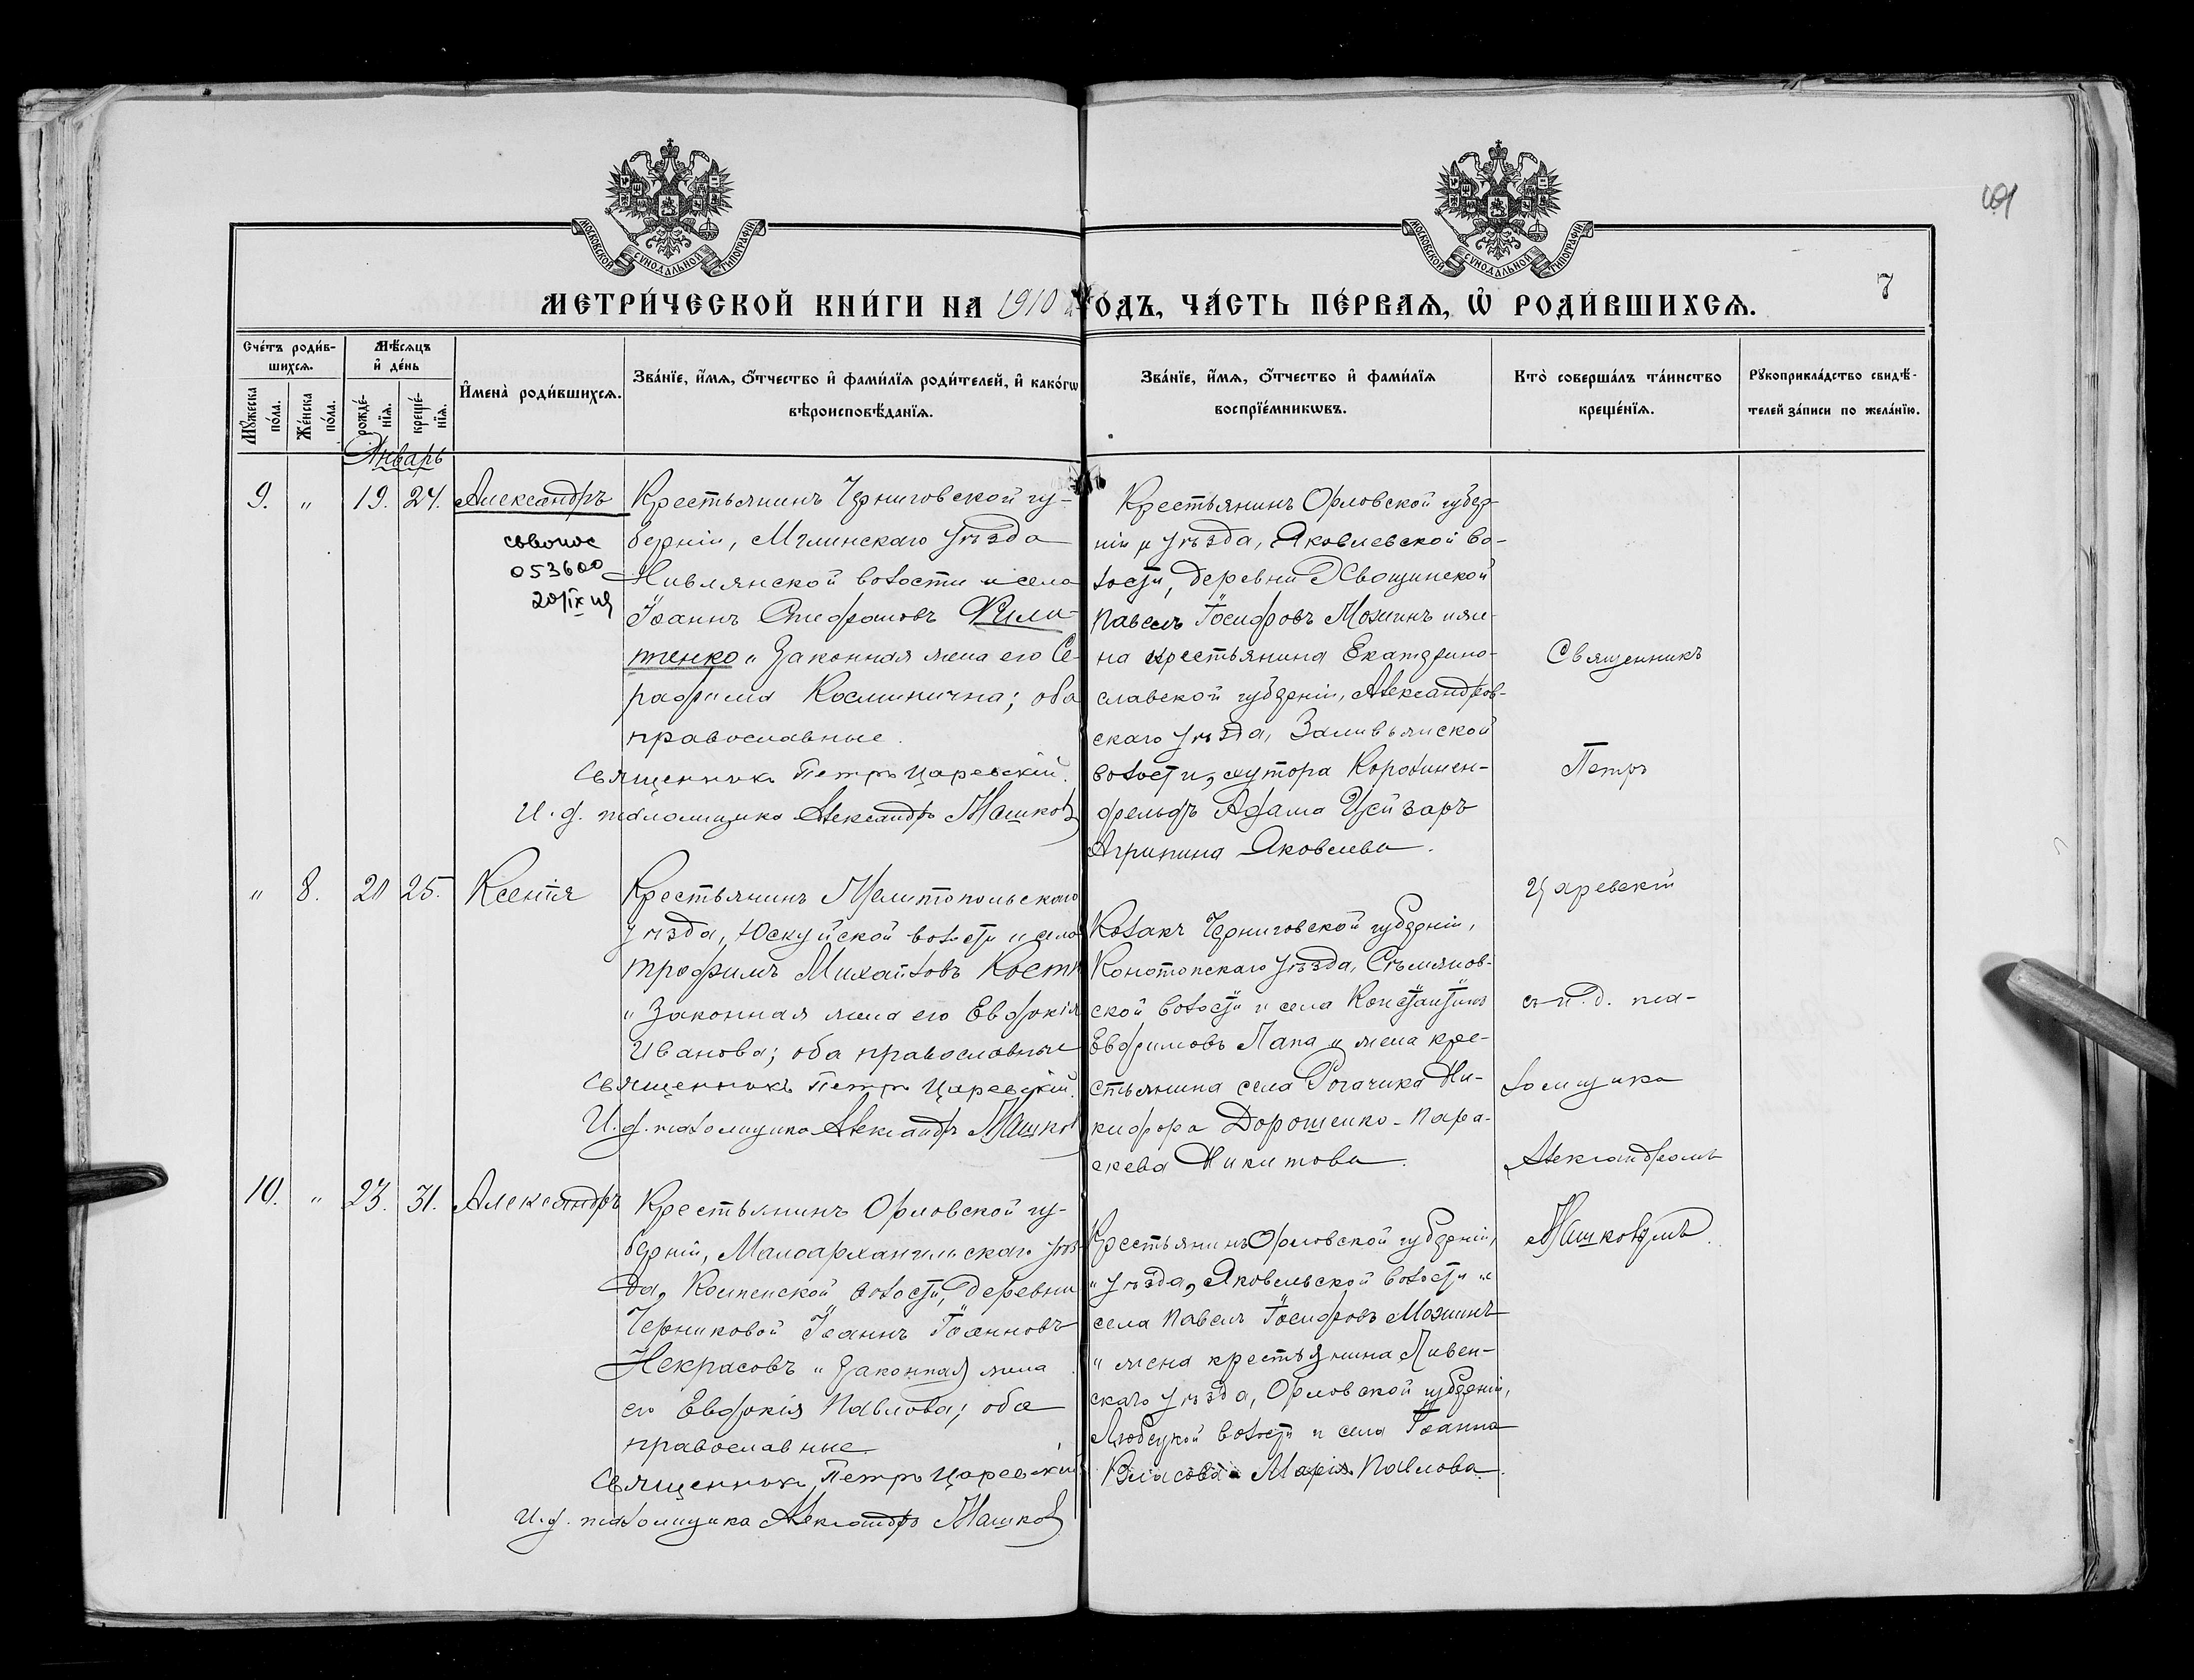 МОСКОВСКОЙ СѴНОДАЛЬНОЙ ТИПОГРАФІИ
МОСКОВСКОЙ СѴНОДАЛЬНОЙ ТИПОГРАФІИ
7
МЕТРИ́ЧЕСКОЙ КНИ́ГИ НА 1910 ГОДЪ, ЧА́СТЬ ПЕ́РВАѦ, Ѽ РОДИ́ВШИХСѦ.
Сче́тъ роди́в-
шихсѧ.
Мꙋ́жеска по́ла.
Же́нска по́ла.
Мѣ́сѧцъ и҆ де́нь
рожде́-
нїѧ.
креще́-
нїѧ.
И҆мена̀ роди́вшихсѧ.
Зва́нїе, и҆́мѧ, ѻ҆́тчество и҆ фами́лїѧ роди́телей, и҆ како́гѡ
вѣроисповѣ́данїѧ.
Зва́нїе, и҆́мѧ, ѻ҆́тчество и҆ фами́лїѧ
воспрїе́мникѡвъ.
Кто̀ соверша́лъ та́инство
креще́нїѧ.
Рꙋкоприкла́дство свидѣ́-
телей за́писи по жела́нїю.
Январь
9. " 19. 24. Александръ
053600
Крестьянинъ Черниговской гу-
берніи, Мглинскаго уѣзда
Нивлянской волости и села
Іоаннъ Стефановъ Фили-
пенко и законная жена его Се-
рафима Космичична; оба
православные.
Священникъ Петръ Царевскій.
И. д. псаломщика Александръ Машковъ
Крестьянинъ Орловской губер-
ніи и уѣзда, Яковлевской во-
лости, деревни Хвощинской
Павелъ Іосифовъ Мохинъ и же-
на крестьянина Екатерино-
славской губерніи, Александров-
скаго уѣзда,
волости, хутора
фельдъ Адама Цейзаръ
Агрипина Яковлева.
" 8. 20 25. Ксенія
Крестьянинъ Мелитопольскаго
уѣзда, Юскуйской волости и села
Трофимъ Михайловъ
и законная жена его Евдокія
Иванова; оба православные
Священникъ Петръ Царевскій.
И. д. псаломщика Александръ Машковъ
Козакъ Черниговской губерніи,
Конотопскаго уѣзда,
ской волости и села Константинъ
Евфимовъ Лапа и жена кре-
стьянина села Рогачика Ни-
кифора Дорошенко - Пара-
скева Никитова.
10. " 23. 31. Александръ
Крестьянинъ Орловской гу-
берніи, Малоархангельскаго уѣз-
да, волости, деревни
Черниковой Іоаннъ Іоанновъ
Некрасовъ и законная жена
его Евдокія Павлова; оба
православные.
Священникъ Петръ Царевскій
И. д. псаломщика Александръ Машковъ
Крестьянинъ Орловской губерніи,
и уѣзда, Яковлевской волости и
села Павелъ Іосифовъ Мохинъ
и жена крестьянина Ливен-
скаго уѣзда, Орловской губерніи,
волости и села Іоанна
Власова Марія Павлова.
Священникъ
Петръ
Царевскій
съ и. д. пса-
ломщика
Александромъ
Машковымъ.